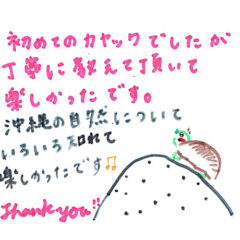 初めてのカヤックでしたが
丁寧に教えて頂いて
楽しかったです。
沖縄の自然について
いろいろ知れて
楽しかったです♫
Thank you!!